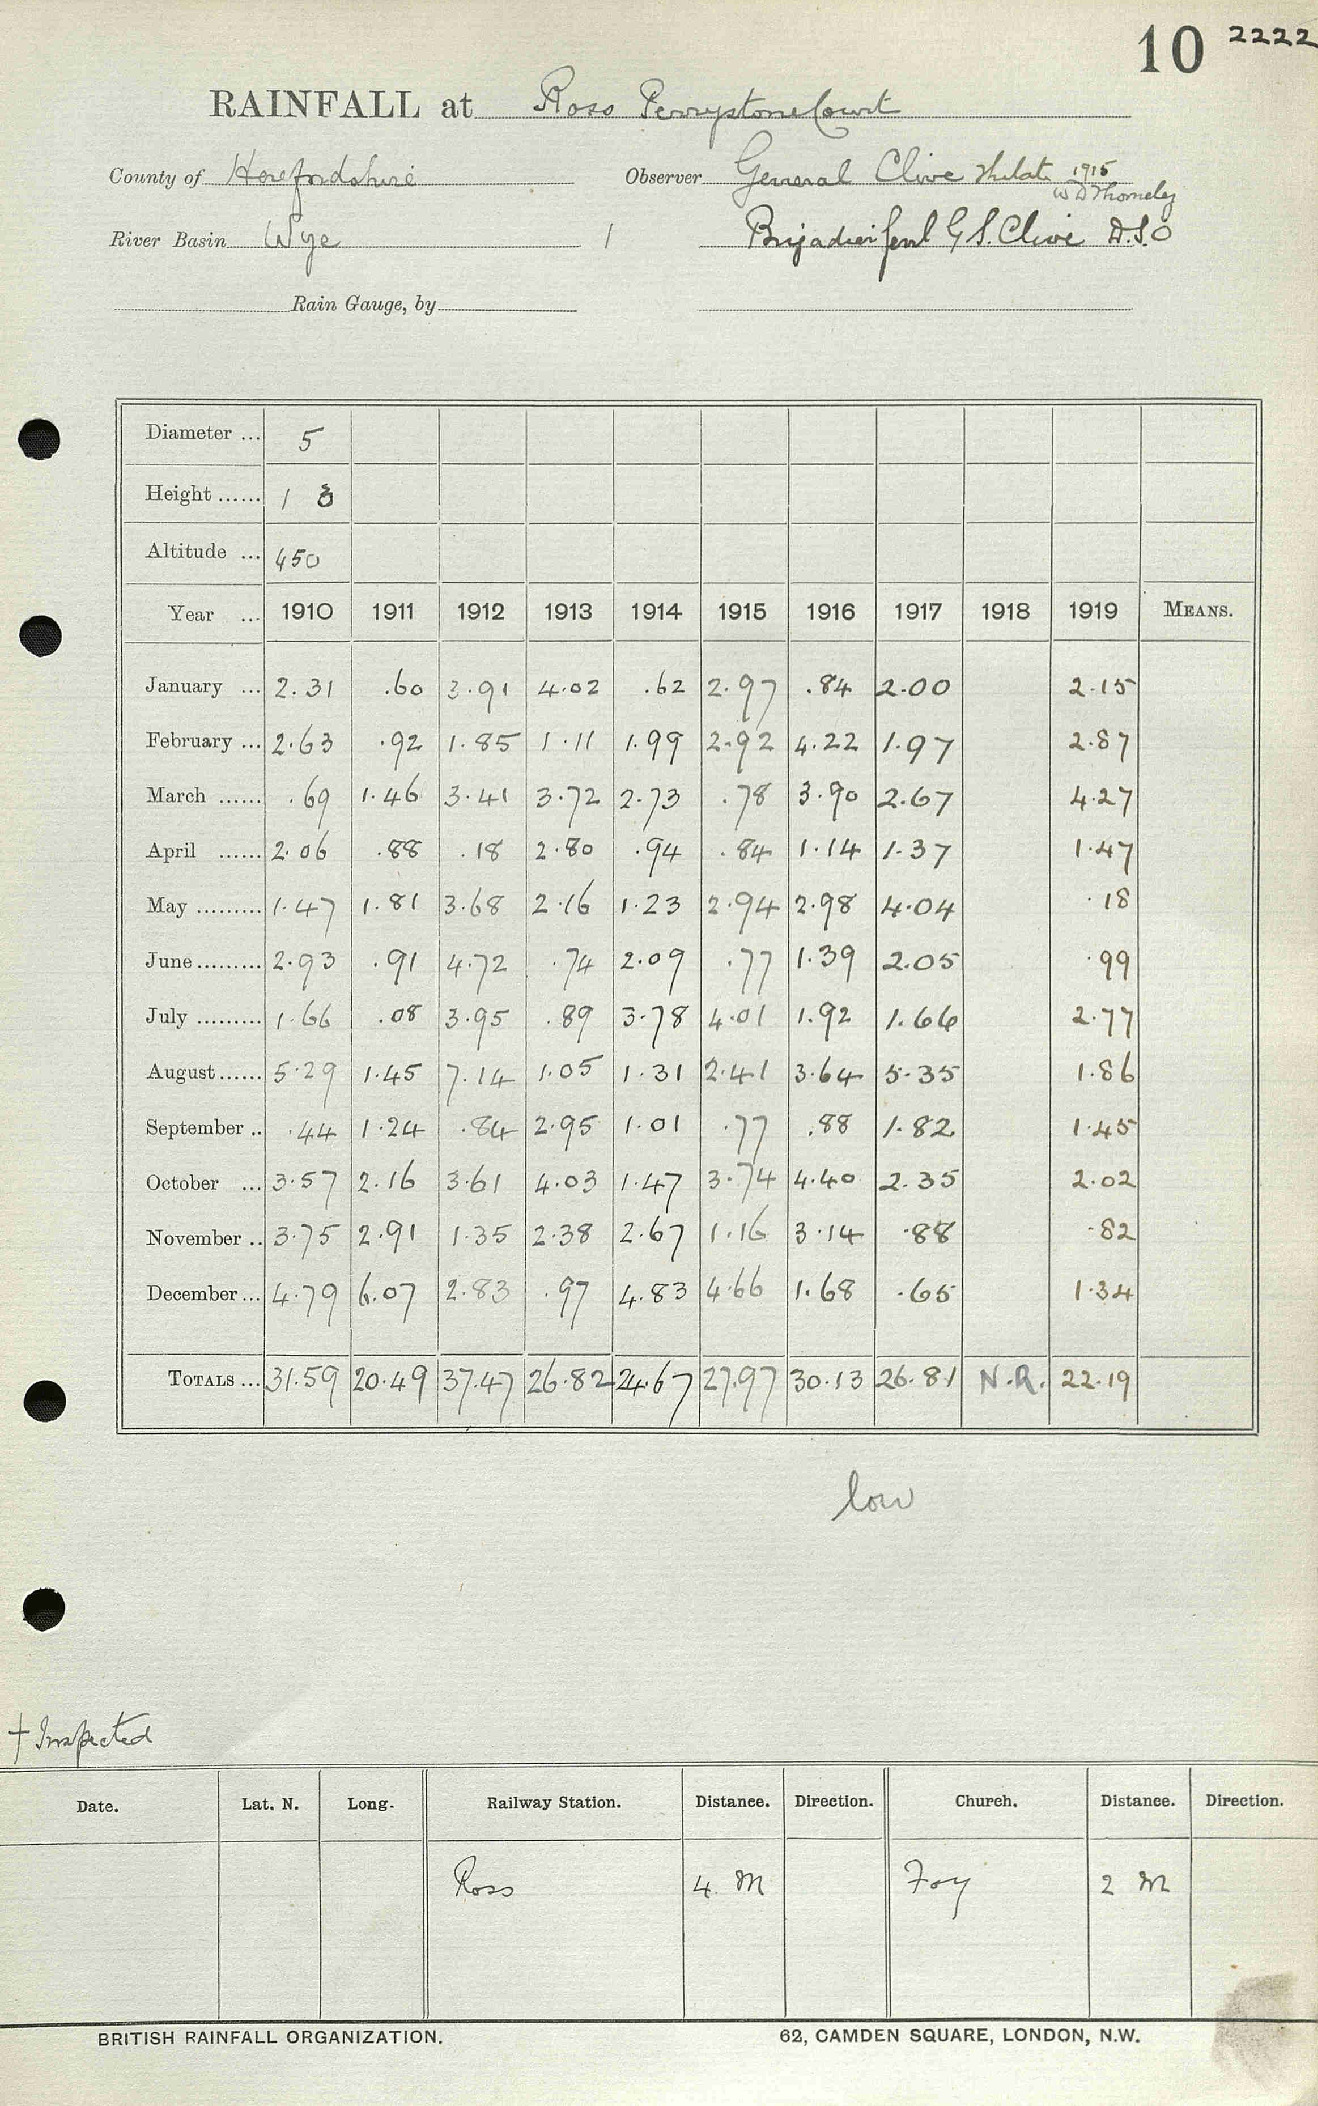 10 2222
RAINFALL at Ross Perrystone Court
County of Herefordshire Observer General Clive 1915
W D Thorneley
River Basin Wye 1 Brigadier Genl G S. Clive D.S.O
Rain Gauge, by
Diameter ... 5
Height ...... 1 3
Altitude ... 450
Year ... 1910 1911 1912 1913 1914 1915 1916 1917 1918 1919 MEANS.
January ... 2.31 .60 3.91 4.02 .62 2.97 .84 2.00 2.15
February ... 2.63 .92 1.85 1.11 1.99 2.92 4.22 1.97 2.87
March ...... .69 1.46 3.41 3.72 2.73 .78 3.90 2.67 4.27
April ...... 2.06 .88 .18 2.80 .94 .84 1.14 1.37 1.47
May ......... 1.47 1.81 3.68 2.16 1.23 2.94 2.98 4.04 .18
June ......... 2.93 .91 4.72 .74 2.09 .77 1.39 2.05 .99
July ......... 1.66 .08 3.95 .89 3.78 4.01 1.92 1.66 2.77
August ...... 5.29 1.45 7.14 1.05 1.31 2.41 3.64 5.35 1.86
September .. .44 1.24 .84 2.95 1.01 .77 .88 1.82 1.45
October ... 3.57 2.16 3.61 4.03 1.47 3.74 4.40 2.35 2.02
November .. 3.75 2.91 1.35 2.38 2.67 1.16 3.14 .88 .82
December ... 4.79 6.07 2.83 .97 4.83 4.66 1.68 .65 1.34
TOTALS ... 31.59 20.49 37.47 26.82 24.67 27.97 30.13 26.81 N.R. 22.19
low
† Inspected
Date. Lat. N. Long. Railway Station. Distance. Direction. Church. Distance. Direction.
Ross 4 M Foy 2 M
BRITISH RAINFALL ORGANIZATION. 62, CAMDEN SQUARE, LONDON, N.W.